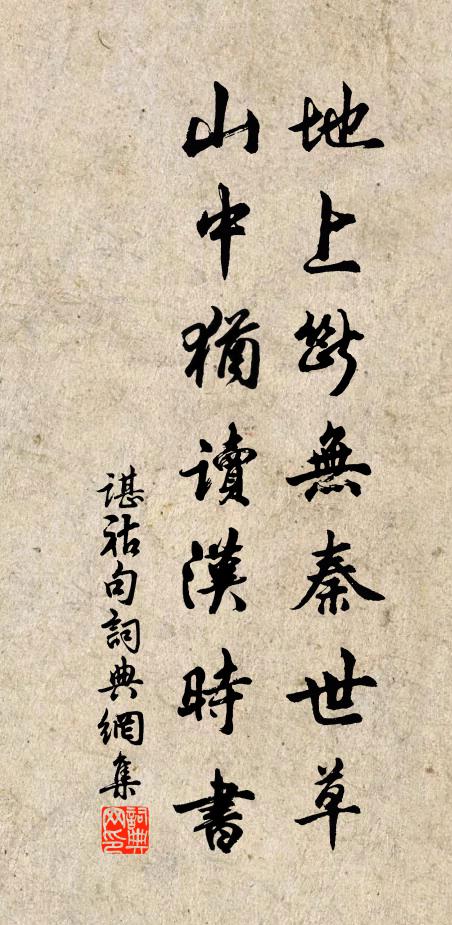 地上斷無秦世草
山中猶讀漢時書
諶祜句詞典網集
詞典
網印